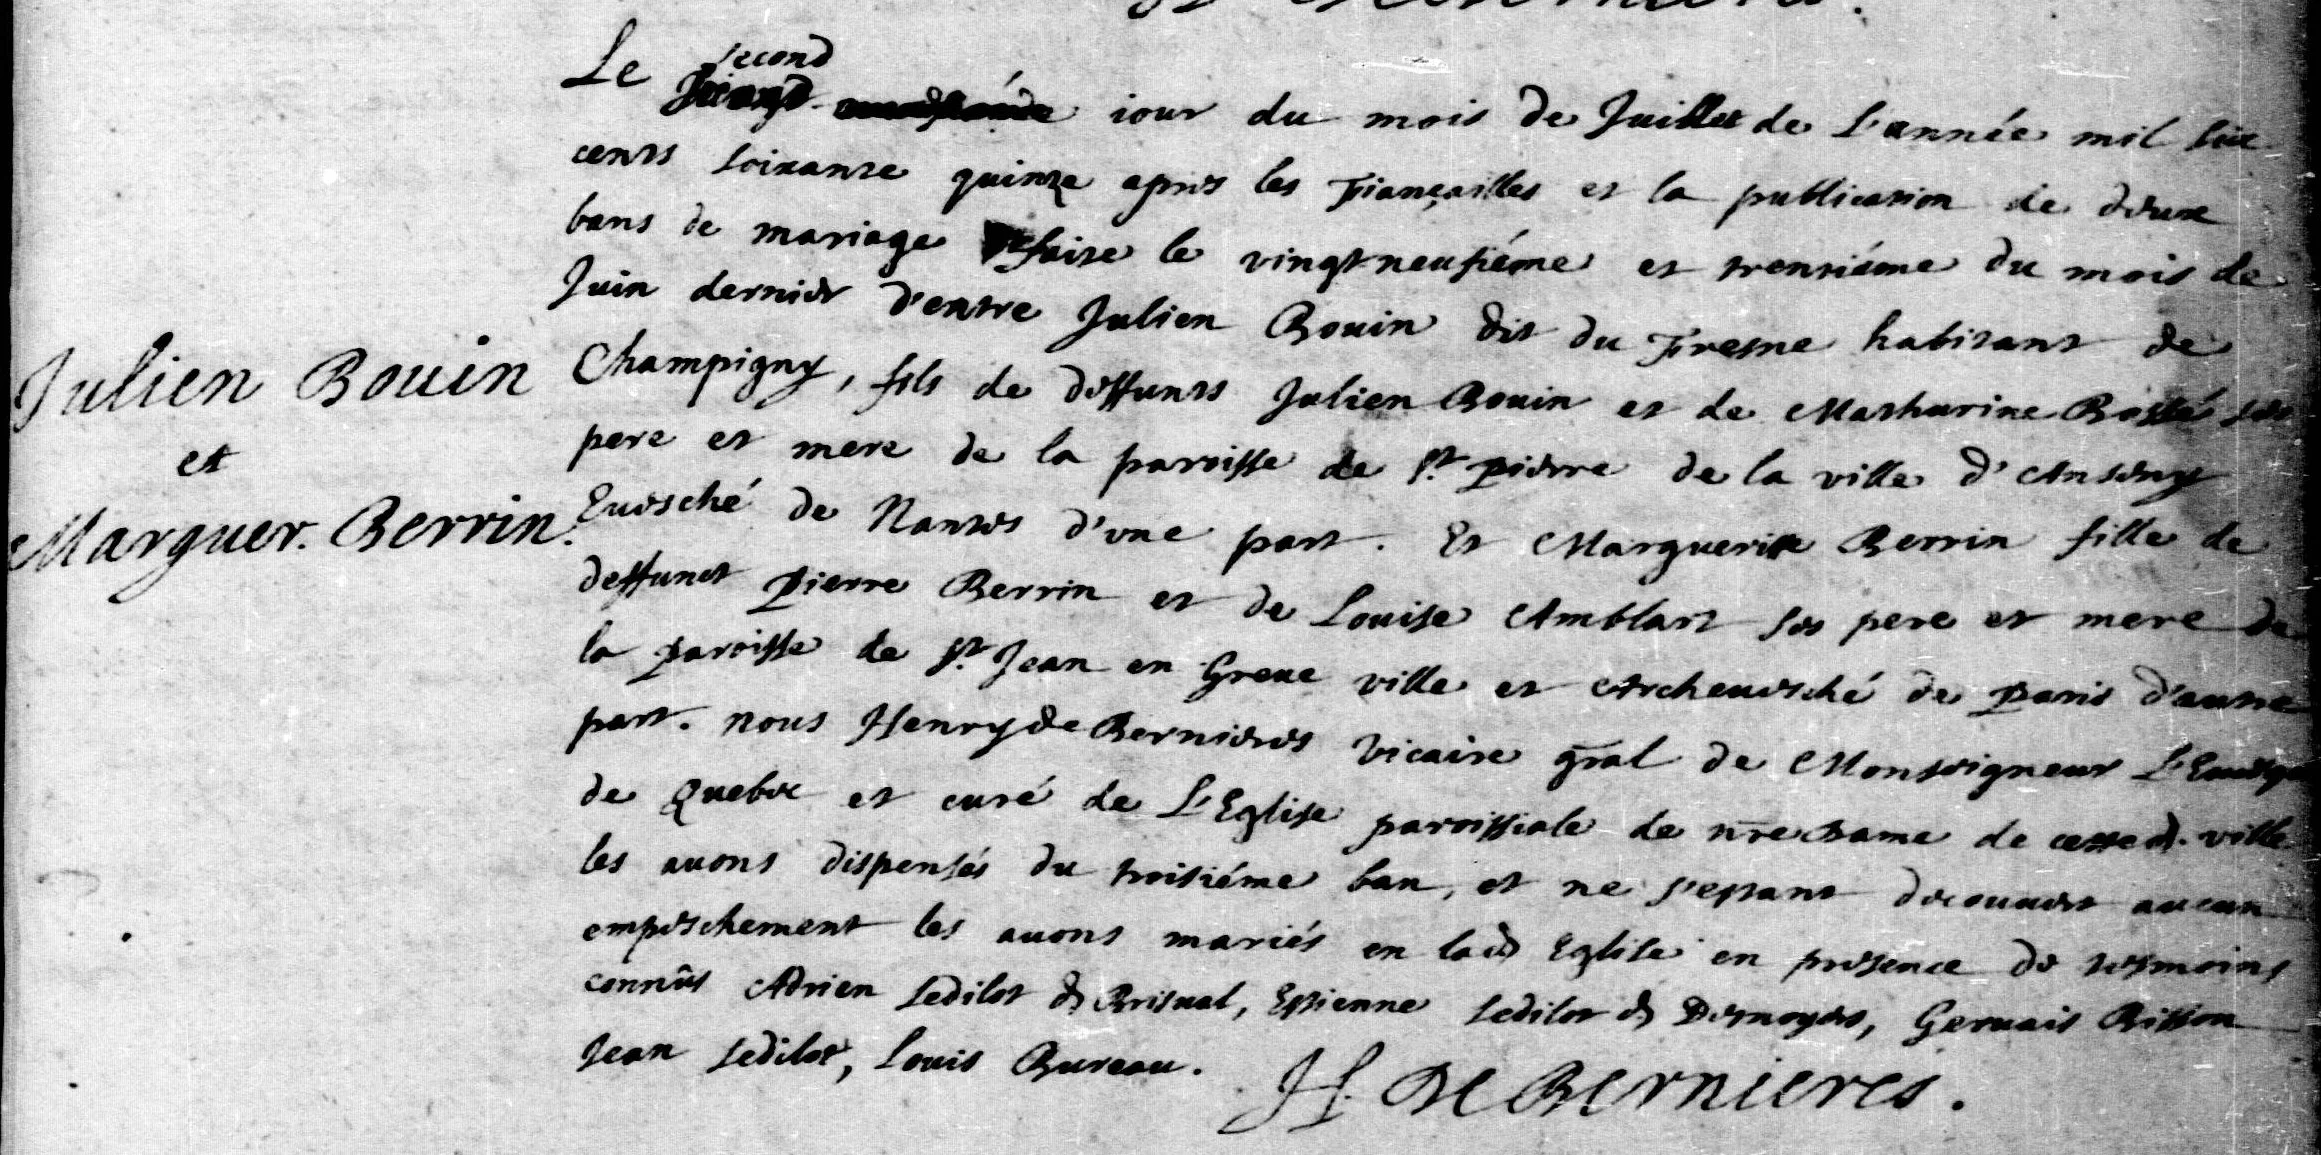 second
Le iour du mois de Juillet de L'année mil six
cents soixante quinze apres les Fiançailles et la publication de deux
bans de mariage faite le vingt-neufiéme et trentiéme du mois de
Juin dernier d'entre Julien Bouin dit du Fresne habitant de
Champigny, fils de deffunts Julien Bouin et de Mathurine ses
Julien Bouin
pere et mere de la paroisse de St. Pierre de la ville d'
et
Euesché de Nantes d'vne part. Et Marguerite Berrin fille de
Marguer. Berrin.
deffunct Pierre Berrin et de Louise Amblart ses pere et mere de
la Paroisse de St. Jean en Greue ville et Archeuesché de Paris d'autre
part. nous Henry de Bernieres Vicaire gral de Monseigneur L'Euesque
de Quebec et curé de L'Eglise paroissiale de nre Dame de cette d. ville
les auons dispensés du troisiéme ban, et ne s'estant découuert aucun
empeschement les auons mariés en lad. Eglise en presence de tesmoins
connûs Adrien Sedilot d. Brisual, Estienne Sedilot d. Desnoyers, Geruais Bisson
Jean Sedilot, Louis Bureau.
H. De Bernieres.